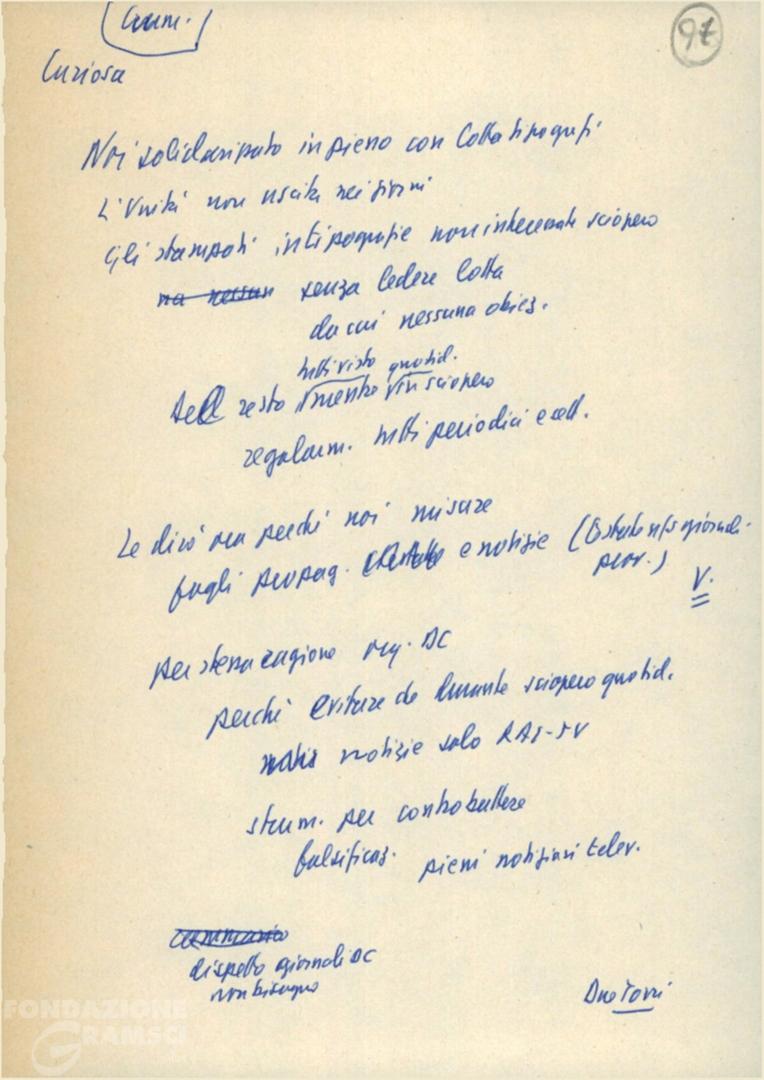 Comm.
97
Curiosa
Noi solidarizzato in pieno con lotta tipografi
L'Unità non uscita nei giorni
Gli stampati in tipografie non interessate sciopero
ma nessun senza ledere lotta
da cui nessuna obiez.
tutti visto quotid.
Del resto mentre in sciopero
regolarm. tutti periodici e sett.
Le dirò ma perché noi misure
fogli propag. e notizie ( giornali
prov.)
V.
per stessa ragione DC
perché evitare che durante sciopero quotid.
notizie solo RAI-TV
strum. per controbattere
falsificaz. pieni notiziari telev.
dispetto giornali DC
non bisogno
Due Torri
FONDAZIONE
GRAMSCI